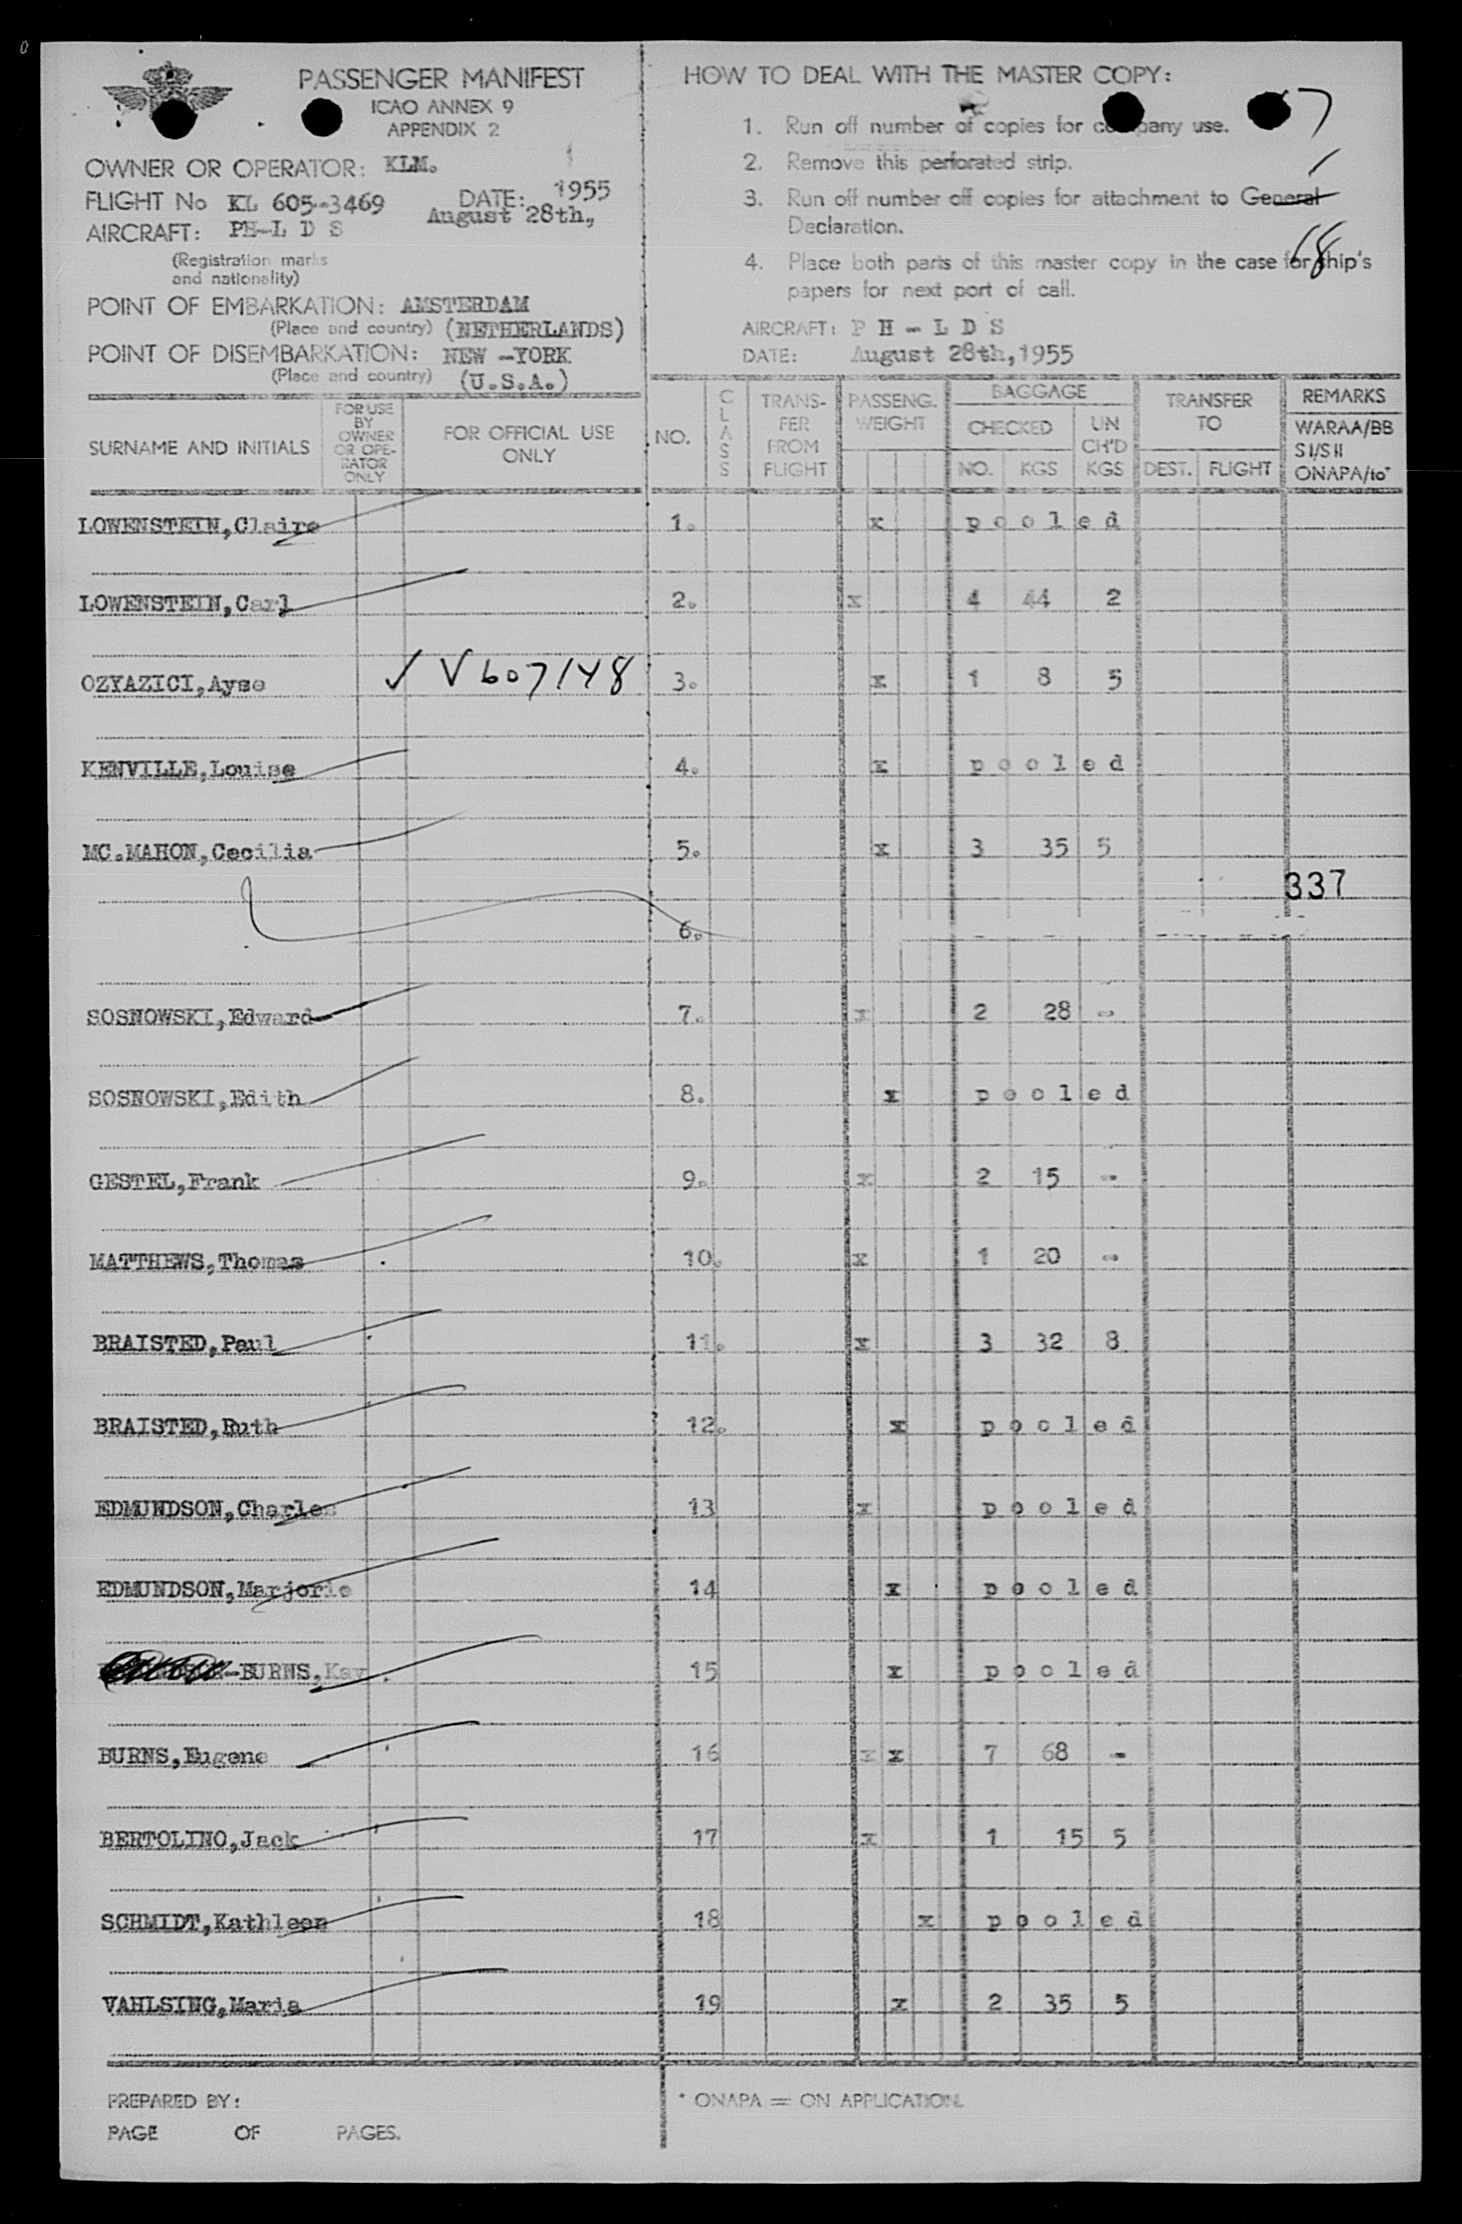 PASSENGER MANIFEST
ICAO ANNEX 9
APPENDIX 2
OWNER OR OPERATOR: KLM.
FLIGHT No KL 605-3469 DATE: 1955
August 28th,
AIRCRAFT: PH-L D S
(Registration marks
and nationality)
POINT OF EMBARKATION: AMSTERDAM
(Place and country) (NETHERLANDS)
POINT OF DISEMBARKATION: NEW -YORK
(Place and country) (U.S.A.)
HOW TO DEAL WITH THE MASTER COPY:
7
1. Run off number of copies for company use.
2. Remove this perforated strip.
3. Run off number off copies for attachment to General
Declaration.
68
4. Place both parts of this master copy in the case for ship's
papers for next port of call.
AIRCRAFT: P H - L D S
DATE: August 28th,1955
SURNAME AND INITIALS
FOR USE
BY
OWNER
OR OPE-
RATOR
ONLY
FOR OFFICIAL USE
ONLY
NO.
CLASS
TRANS-
FER
FROM
FLIGHT
PASSENG.
WEIGHT
BAGGAGE
CHECKED
NO. KGS
UN
CH'D
KGS
TRANSFER
TO
DEST. FLIGHT
REMARKS
WARAA/BB
SI/SII
ONAPA/to*
LOWENSTEIN,Claire 1. x pooled
LOWENSTEIN,Carl 2. x 4 44 2
OZYAZICI,Ayse ✓ V607148 3. x 1 8 5
KENVILLE,Louise 4. x pooled
MC.MAHON,Cecilia 5. x 3 35 5
337
6.
SOSNOWSKI,Edward 7. x 2 28 -
SOSNOWSKI,Edith 8. x pooled
GESTEL,Frank 9. x 2 15 -
MATTHEWS,Thomas 10. x 1 20 -
BRAISTED,Paul 11. x 3 32 8
BRAISTED,Ruth 12. x pooled
EDMUNDSON,Charles 13 x pooled
EDMUNDSON,Marjorie 14 x pooled
-BURNS,Kay 15 x pooled
BURNS,Eugene 16 x x 7 68 -
BERTOLINO,Jack 17 x 1 15 5
SCHMIDT,Kathleen 18 x pooled
VAHLSING,Maria 19 x 2 35 5
PREPARED BY:
PAGE OF PAGES.
* ONAPA = ON APPLICATION.